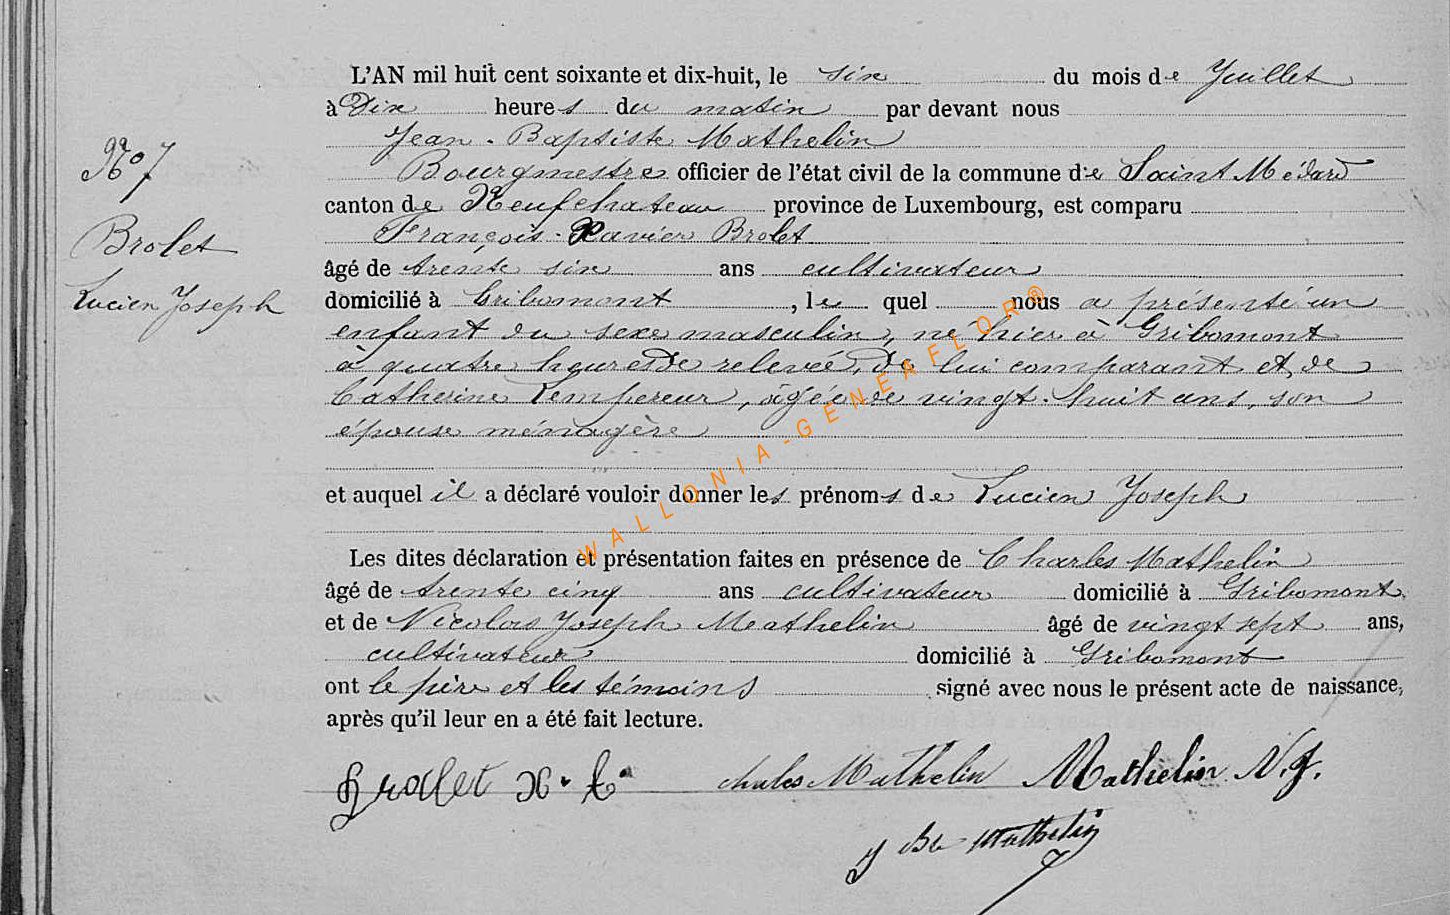 L'AN mil huit cent soixante et dix-huit, le six du mois de Juillet
à Dix heures du matin par devant nous
Jean-Baptiste Mathelin
Bourgmestre officier de l'état civil de la commune de Saint Médard
canton de Neufchateau province de Luxembourg, est comparu
François-Xavier Brolet
âgé de trente six ans cultivateur
domicilié à Gribomont, le quel nous a présenté un
enfant du sexe masculin, né hier à Gribomont
à quatre heures de relevée, de lui comparant et de
Catherine Lempereur, âgée de vingt-huit ans, son
épouse ménagère
et auquel il a déclaré vouloir donner les prénoms de Lucien Joseph
Les dites déclaration et présentation faites en présence de Charles Mathelin
âgé de trente cinq ans cultivateur domicilié à Gribomont
et de Nicolas Joseph Mathelin âgé de vingt sept ans,
cultivateur domicilié à Gribomont
ont le père et les témoins signé avec nous le présent acte de naissance,
après qu'il leur en a été fait lecture.
N° 7
Brolet
Lucien Joseph
Brollet x. f. charles Mathelin Mathelin N. J.
J Bte Mathelin
WALLONIA-GENEAFLOR®